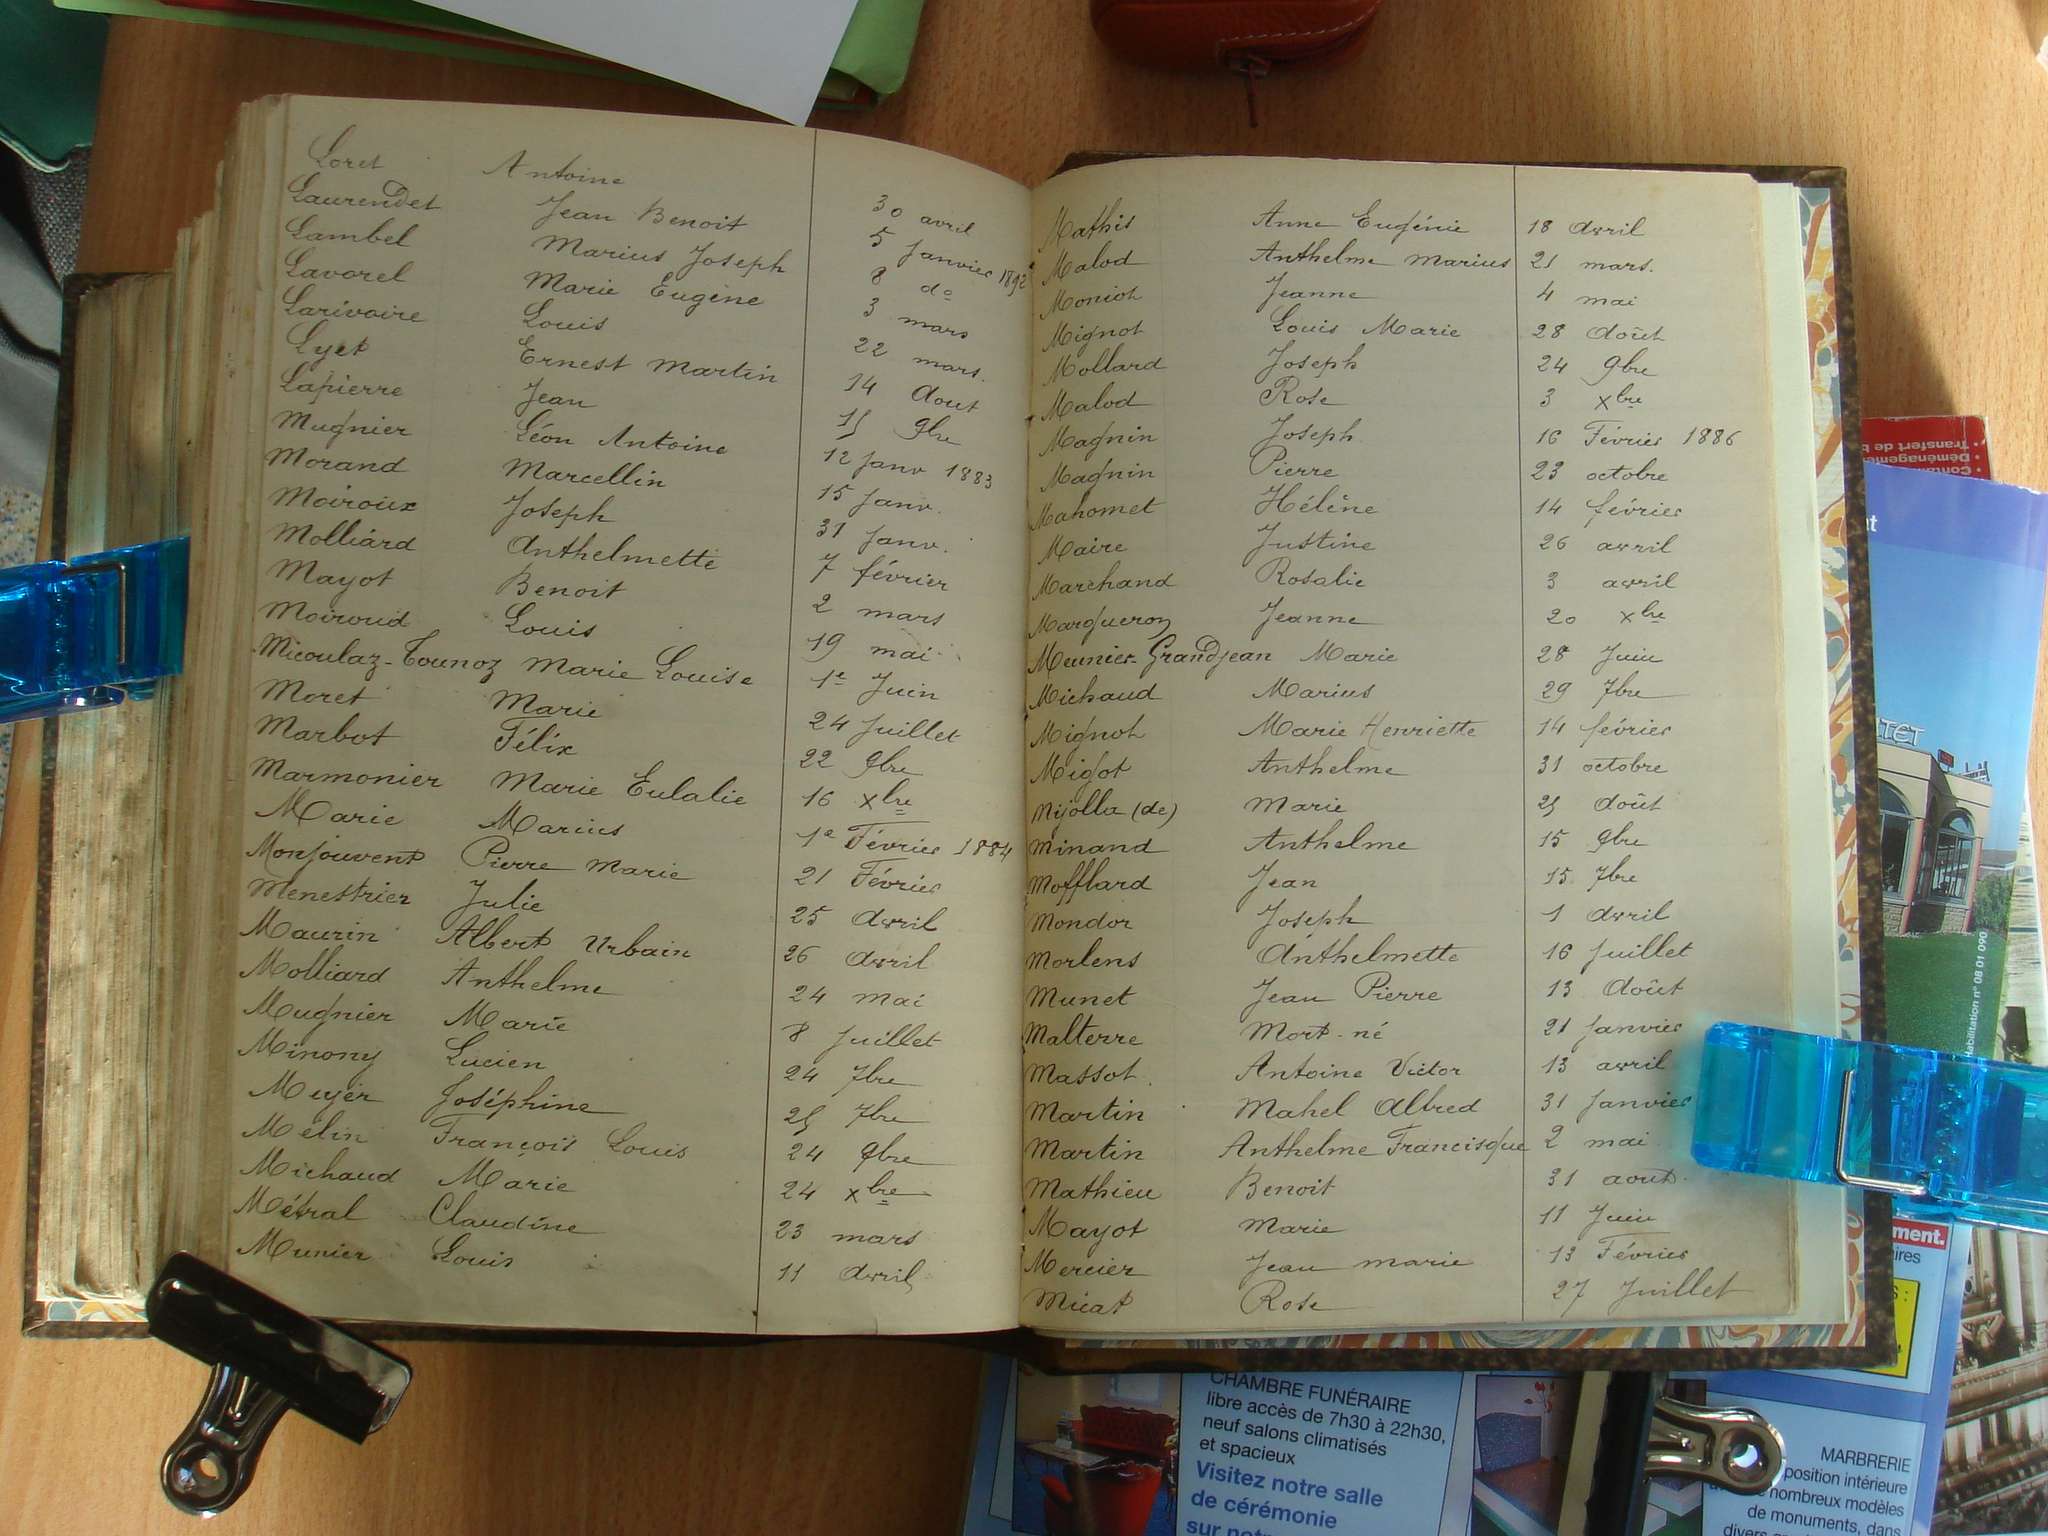 Loret Antoine 30 avril
Laurendet Jean Benoit 5 Janvier 1892
Lambel Marius Joseph 8 do
Lavorel Marie Eugène 3 mars
Larivoire Louis 22 mars.
Lyet Ernest Martin 14 Aout
Lapierre Jean 15 9bre
Mugnier Léon Antoine 12 Janv 1883
Morand Marcellin 15 Janv.
Moiroux Joseph 31 Janv.
Molliard Anthelmette 7 février
Mayot Benoit 2 mars
Moiroud Louis 19 mai
Micoulaz-Tounoz Marie Louise 1e Juin
Moret Marie 24 Juillet
Marbot Félix 22 9bre
Marmonier Marie Eulalie 16 xbre
Marie Marius 1e Février 1884
Monjouvent Pierre Marie 21 Février
Menestrier Julie 25 Avril
Maurin Albert Urbain 26 Avril
Molliard Anthelme 24 mai
Mugnier Marie 8 Juillet
Minony Lucien 24 7bre
Meyer Joséphine 25 7bre
Melin François Louis 24 9bre
Michaud Marie 24 xbre
Métral Claudine 23 mars
Munier Louis 11 Avril
Mathis Anne Eugénie 18 Avril
Malod Anthelme Marius 21 mars.
Moniot Jeanne 4 mai
Mignot Louis Marie 28 Août
Mollard Joseph 24 9bre
Malod Rose 3 xbre
Magnin Joseph 16 Février 1886
Magnin Pierre 23 octobre
Mahomet Hélène 14 février
Maire Justine 26 avril
Marchand Rosalie 3 avril
Marqueron Jeanne 20 xbre
Meunier-Grandjean Marie 28 Juin
Michaud Marius 29 7bre
Mignot Marie Henriette 14 février
Migot Anthelme 31 octobre
Mijolla (de) Marie 25 Août
Minand Anthelme 15 9bre
Mofflard Jean 15 7bre
Mondor Joseph 1 Avril
Morlens Anthelmette 16 Juillet
Munet Jean Pierre 13 Août
Malterre Mort-né 21 Janvier
Massot. Antoine Victor 13 avril
Martin Mahel Albred 31 Janvier
Martin Anthelme Francisque 2 mai
Mathieu Benoit 31 aout.
Mayot Marie 11 Juin
Mercier Jean marie 13 Février
Micat Rose 27 Juillet
CHAMBRE FUNÉRAIRE
libre accès de 7h30 à 22h30,
neuf salons climatisés
et spacieux
Visitez notre salle
de cérémonie
MARBRERIE
position intérieure
nombreux modèles
de monuments, dans
Habilitation n° 08 01 090